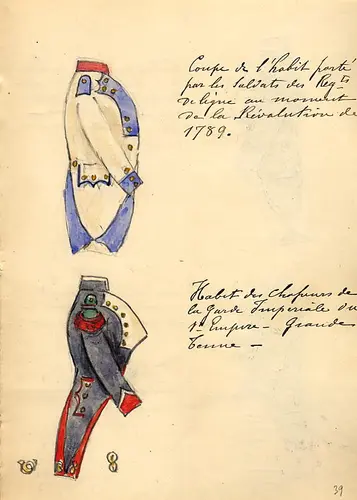 Coupe de l'habit porté
par les Soldats des Reg.ts
de ligne au moment
de la Révolution de
1789.
Habit des Chasseurs de
la Garde Impériale du
1er Empire - Grande
Tenue -
39